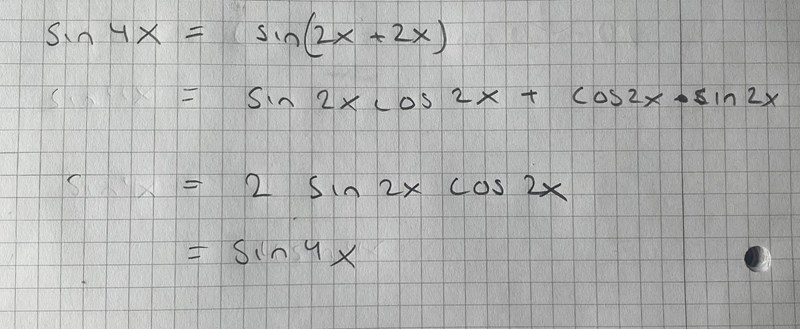 sin 4x = sin(2x + 2x)
= sin 2x cos 2x + cos2x • sin 2x
= 2 sin 2x cos 2x
= sin 4x